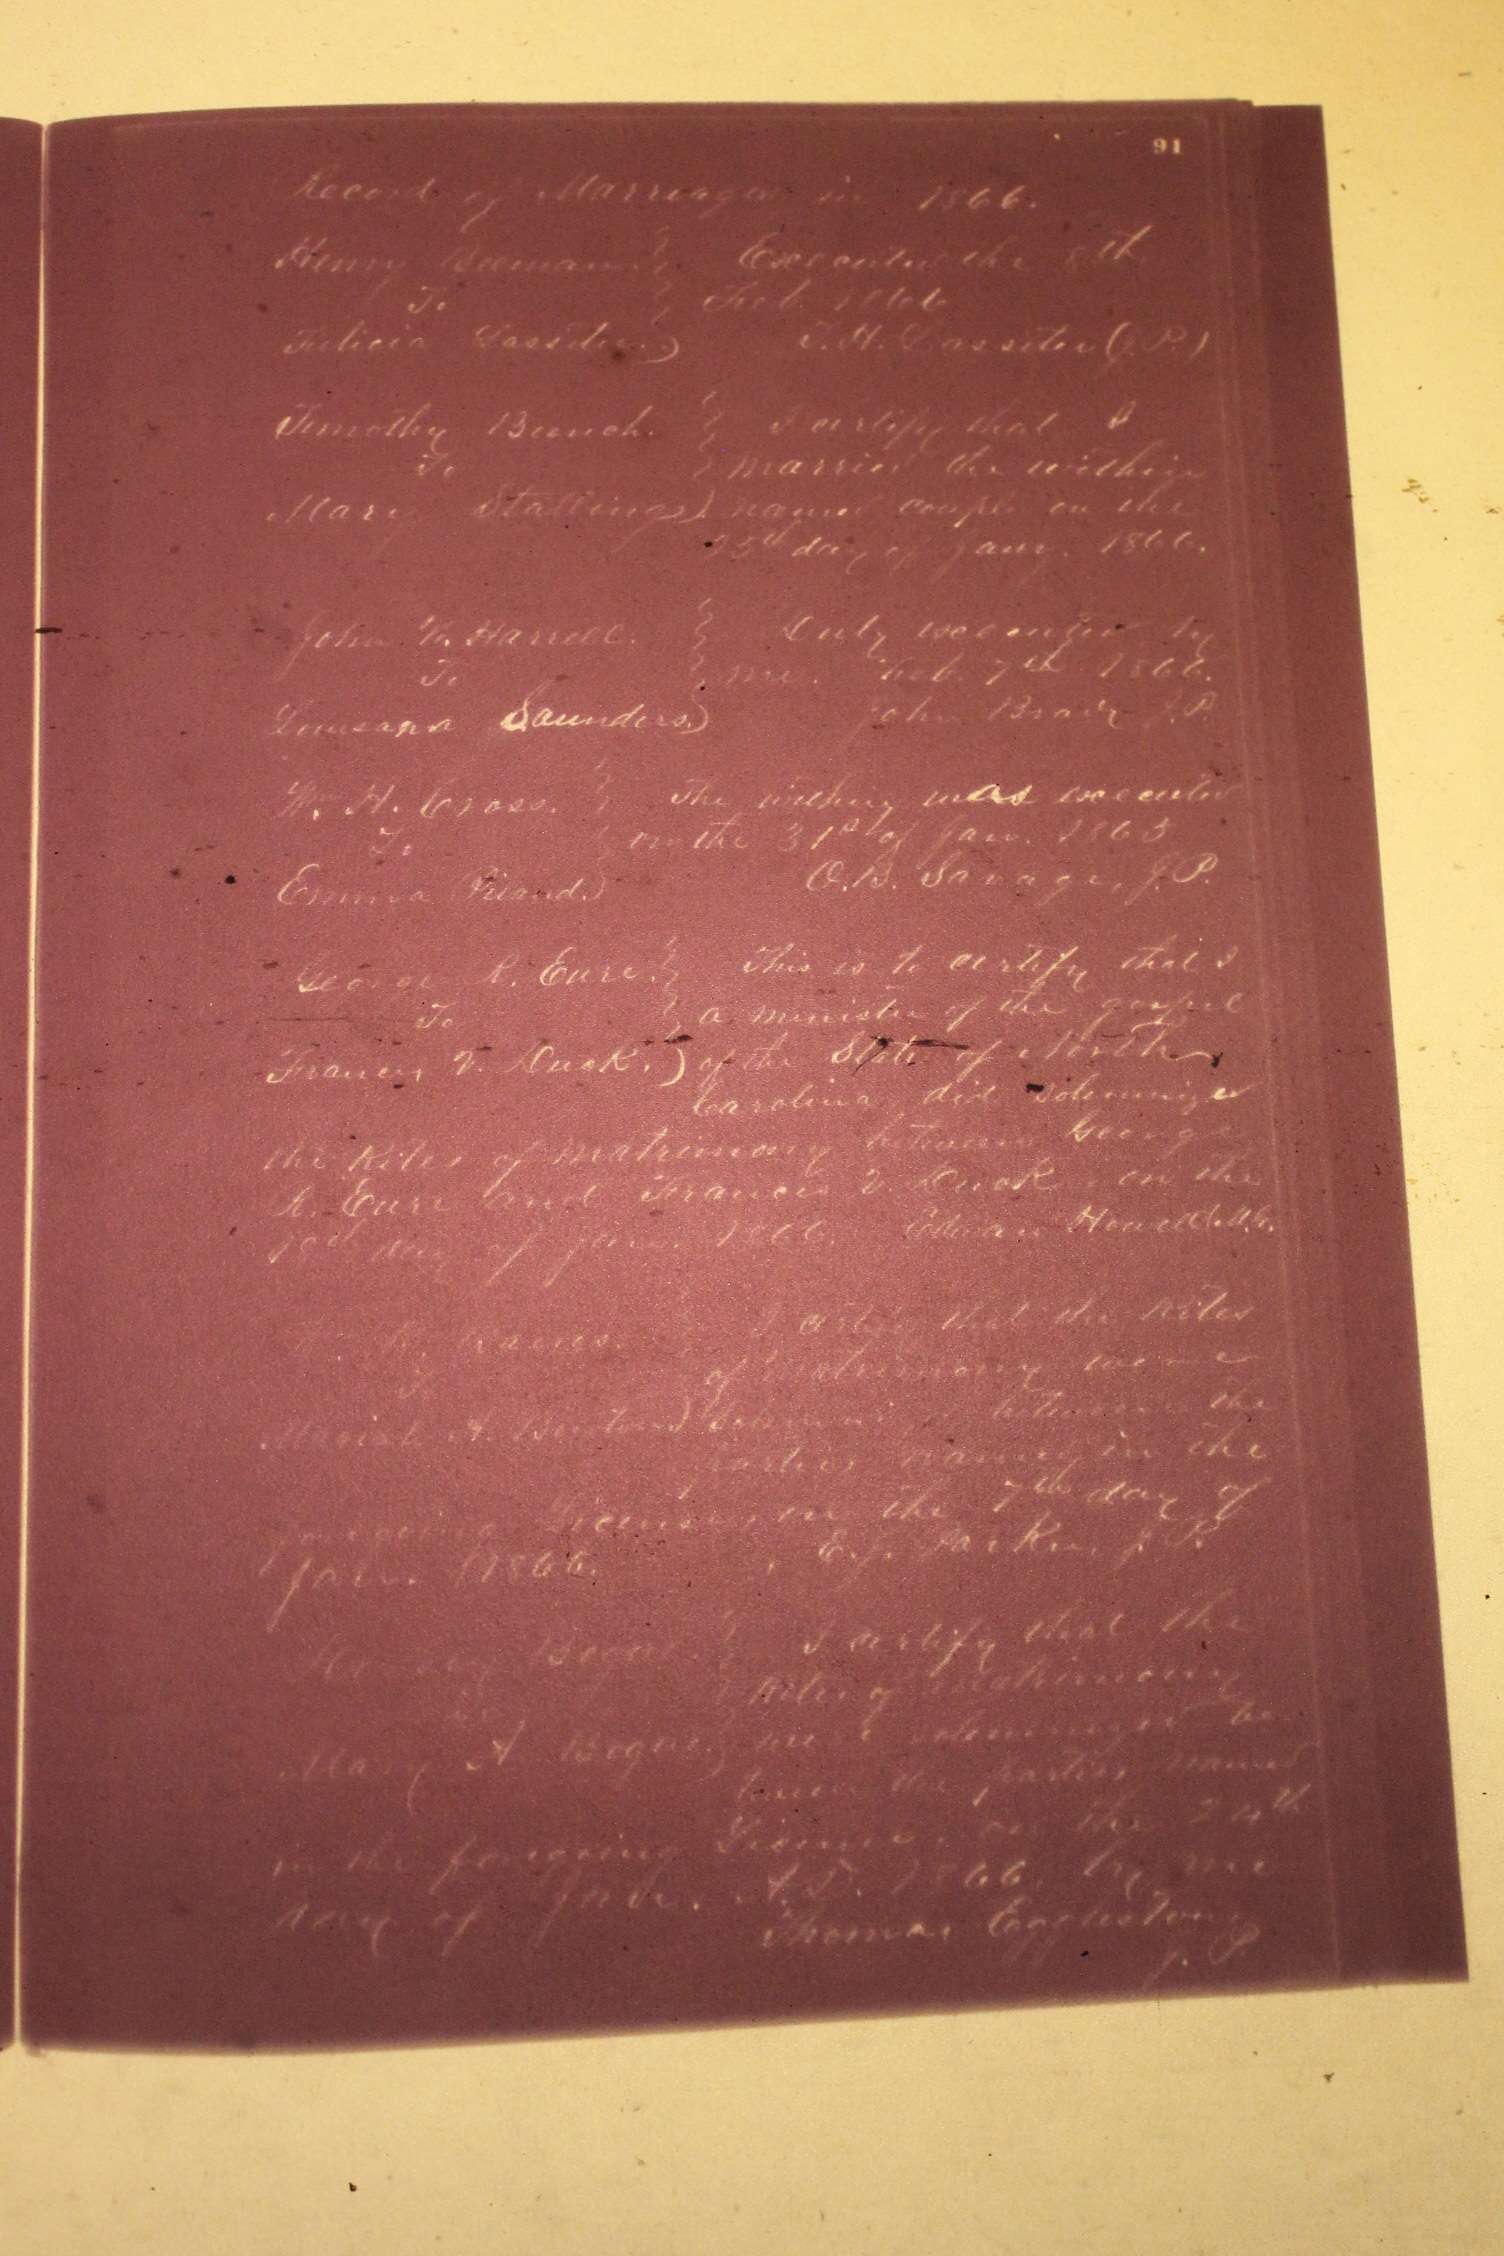 91
Record of Marriages in 1866.
Henry Beeman. Executed the 8th
To Feb. 1866
Felicia Lassiter. T. H. Lassiter (J. P.)
Timothy Bunch. I certify that I
To married the within
Mary Stallings named couple on the
25th day of Jany. 1866.
John W. Harrell. Duly executed by
To me. Feb. 7th 1866.
Louisana Saunders. John Brady J. P.
W. H. Cross. The within was executed
To on the 31st of Jan. 1865
Emma O. B. Savage, J. P.
George R. Eure. This is to certify that I
To a minister of the gospel
Francis V. Duok. of the State of North
Carolina did solemnize
the Rites of matrimony between George
R. Eure and Francis V. Duok. on the
18th day of Jan. 1866. Edwan Howell M. G.
I certify that the Rites
To of matrimony were
Mariah A. Benton between the
parties named in the
foregoing License, on the 7th day of
Jan. 1866. E. J. Parker, J. P.
Bogue. I certify that the
To Rites of matrimony
Mary A. Bogue. were solemnized be-
tween the parties named
in the foregoing License, on the 24th
day of A.D. 1866, by me
Thomas Eggleston
J. P.